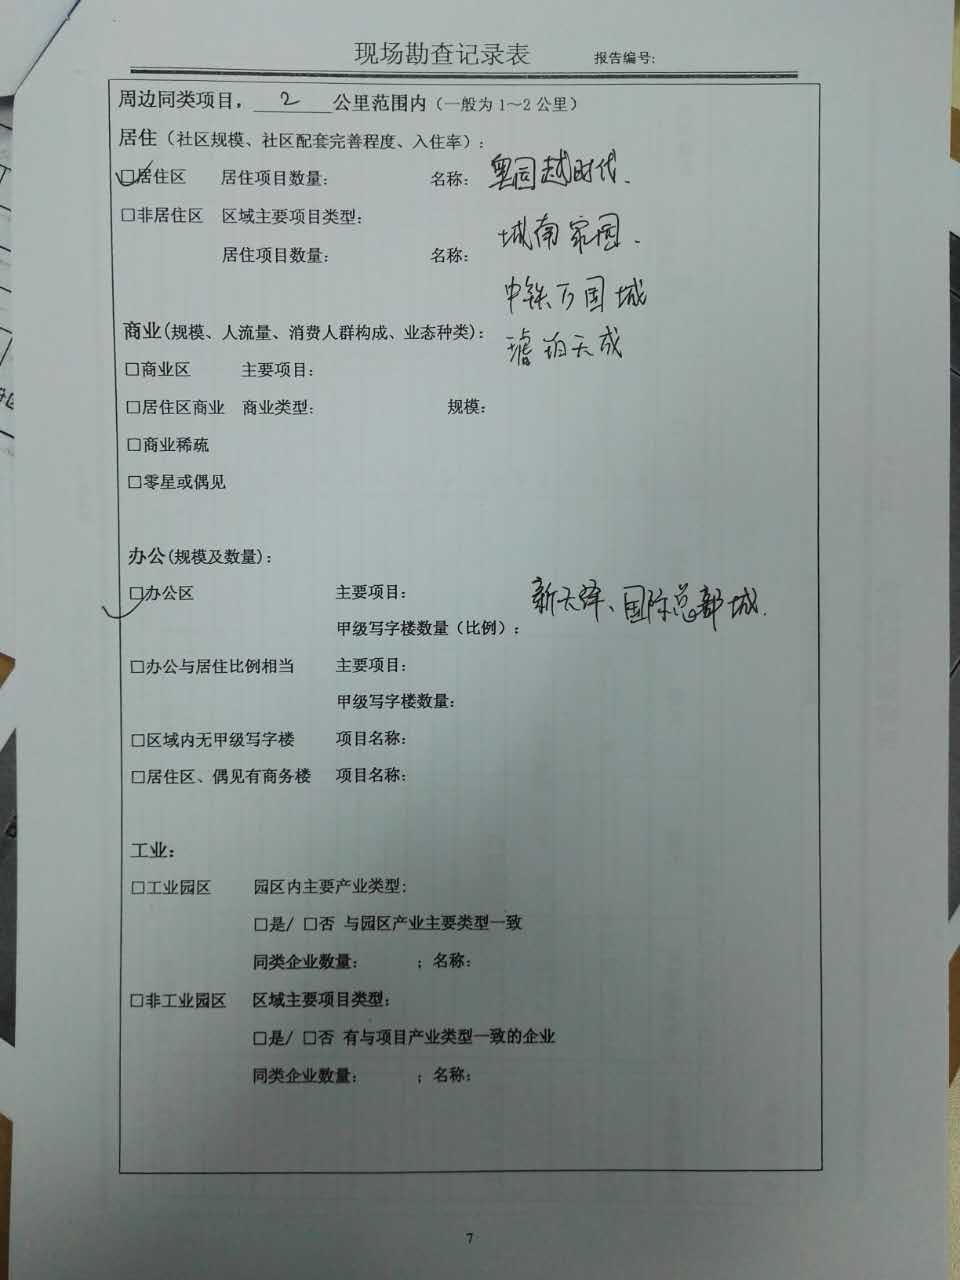 现场勘查记录表 报告编号:
周边同类项目，2公里范围内（一般为1～2公里）
居住（社区规模、社区配套完善程度、入住率）:
☑居住区 居住项目数量: 名称: 奥园越时代、
□非居住区 区域主要项目类型:
城南家园、
居住项目数量: 名称:
中铁万国城
商业(规模、人流量、消费人群构成、业态种类):
珀天成
□商业区 主要项目:
□居住区商业 商业类型: 规模:
□商业稀疏
□零星或偶见
办公(规模及数量):
☑办公区 主要项目: 新天绎、国际总部城.
甲级写字楼数量（比例）:
□办公与居住比例相当 主要项目:
甲级写字楼数量:
□区域内无甲级写字楼 项目名称:
□居住区、偶见有商务楼 项目名称:
工业:
□工业园区 园区内主要产业类型:
□是/ □否 与园区产业主要类型一致
同类企业数量: ；名称:
□非工业园区 区域主要项目类型:
□是/ □否 有与项目产业类型一致的企业
同类企业数量: ；名称:
7